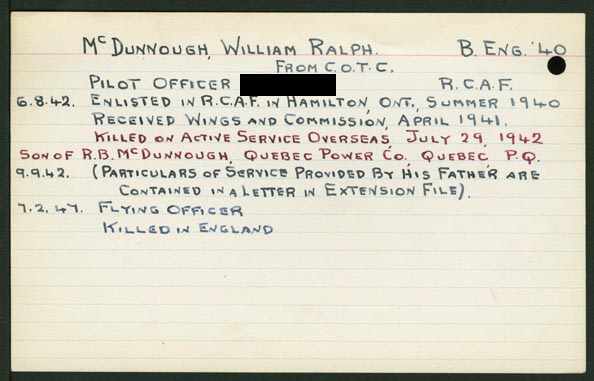 McDUNNOUGH, WILLIAM RALPH. B. ENG. '40
FROM C.O.T.C.
PILOT OFFICER R.C.A.F.
6.8.42. ENLISTED IN R.C.A.F. IN HAMILTON, ONT., SUMMER 1940
RECEIVED WINGS AND COMMISSION, APRIL 1941.
KILLED ON ACTIVE SERVICE OVERSEAS, JULY 29, 1942
SON OF R.B. McDUNNOUGH, QUEBEC POWER CO. QUEBEC P.Q.
9.9.42. (PARTICULARS OF SERVICE PROVIDED BY HIS FATHER ARE
CONTAINED IN A LETTER IN EXTENSION FILE).
7.2.47. FLYING OFFICER
KILLED IN ENGLAND